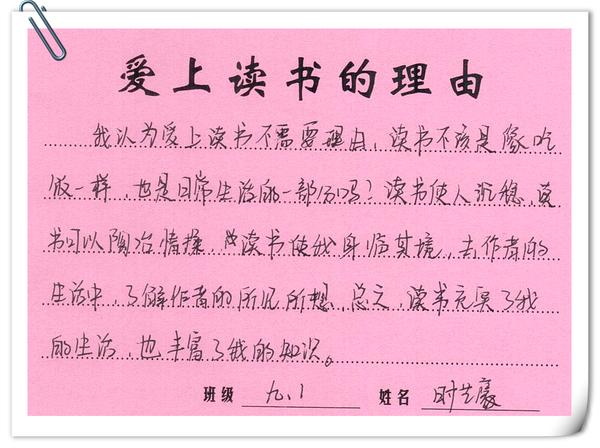 爱上读书的理由
我认为爱上读书不需要理由，读书不该是像吃
饭一样，也是日常生活的一部分吗？读书使人沉稳，读
书可以陶冶情操，读书使我身临其境，去作者的
生活中，了解作者的所见所想，总之，读书充实了我
的生活，也丰富了我的知识。
班级 九.1 姓名 时艺豪